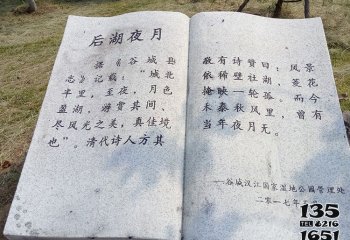 后湖夜月
据《谷城县
志》记载：“城北
半里，至夜，月色
盈湖，游赏其间、
尽风光之美，真佳境
也”。清代诗人方其
敢有诗赞曰：风景
依稀壁社湖，菱花
掩映一轮孤。而今
未泰秋风里，曾有
当年夜月无。
——谷城汉江国家湿地公园管理处
二〇一七年
135
TEL 6216
1651